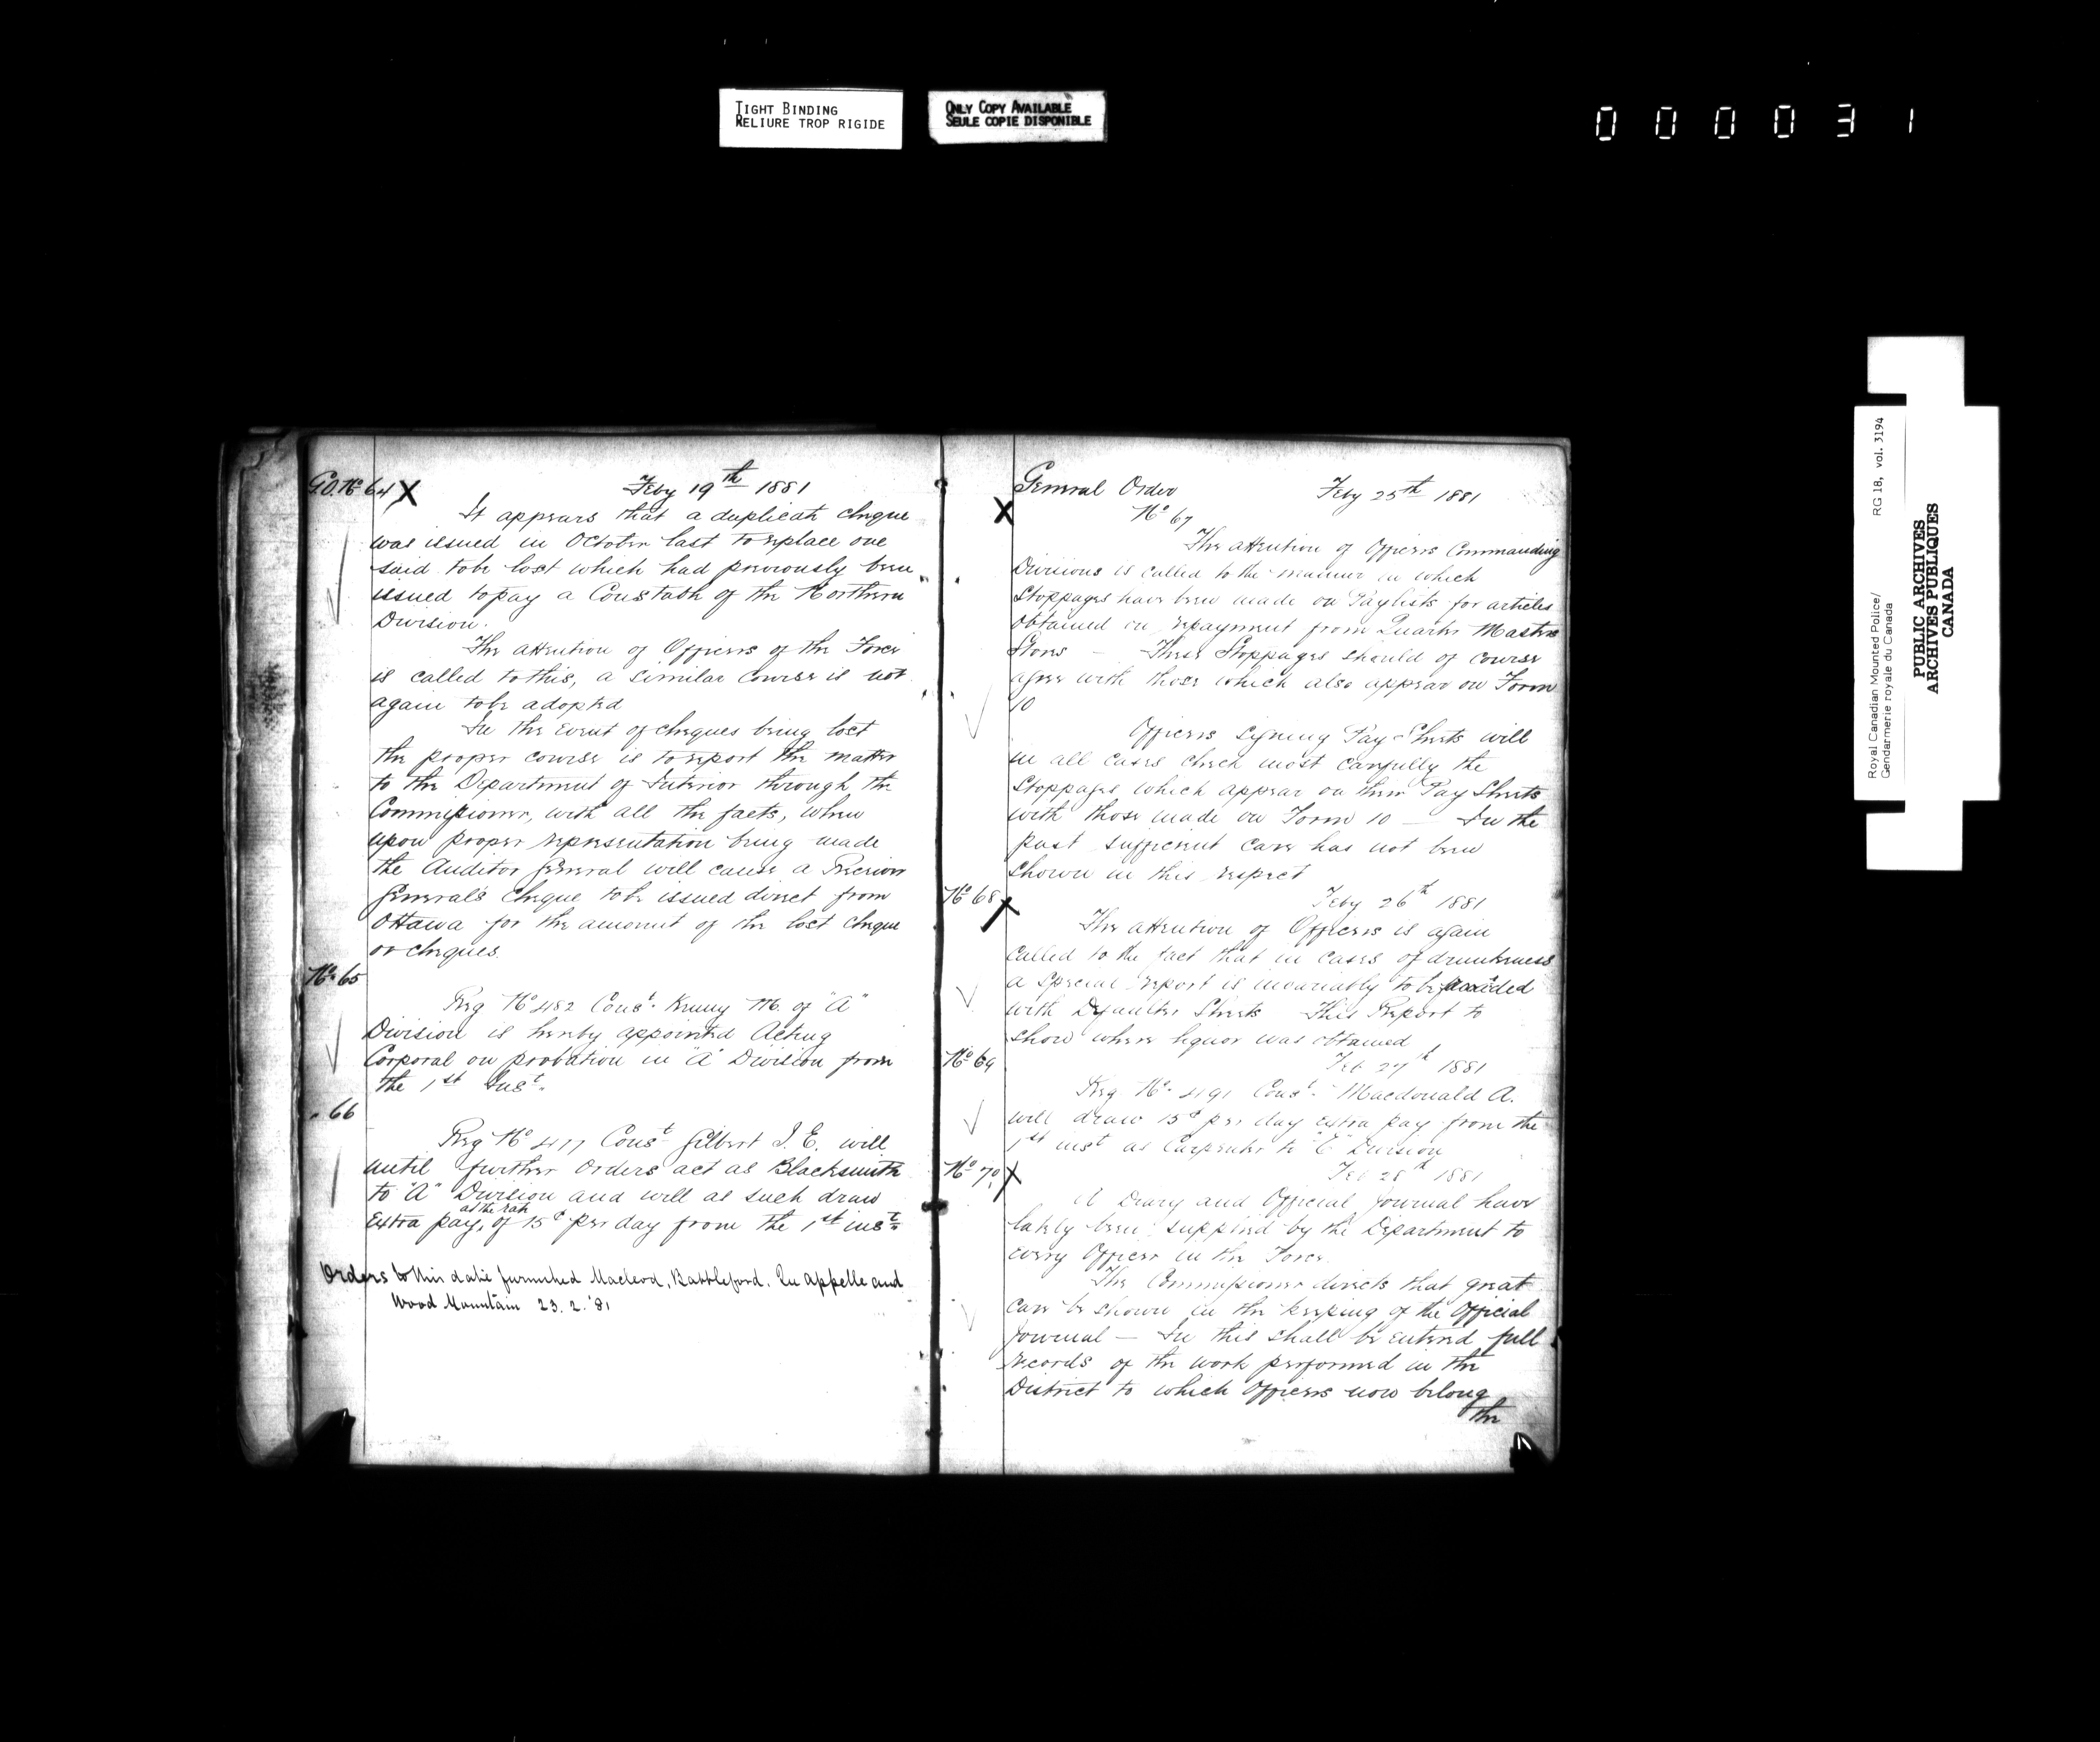 TIGHT BINDING
RELIURE TROP RIGIDE
ONLY COPY AVAILABLE
SEULE COPIE DISPONIBLE
000031
G.O. No 64 X Feby 19th 1881
It appears that a duplicate cheque
was issued in October last to replace one
said to be lost which had previously been
issued to pay a Constable of the Northern
Division.
The attention of Officers of the Force
is called to this, a similar course is not
again to be adopted
In the event of cheques being lost
the proper course is to report the matter
to the Department of Interior through the
Commissioner, with all the facts, when
upon proper representation being made
the Auditor General will cause a Receiver
General's Cheque to be issued direct from
Ottawa for the amount of the lost cheque
or cheques.
No 65
Reg No 482 Const. Kenny M. of "A"
Division is hereby appointed Acting
Corporal on probation in "A" Division from
the 1st Inst.
" 66
Reg No 417 Const Gilbert I. E. will
until further orders act as Blacksmith
to "A" Division and will as such draw
at the rate
extra pay, of 15¢ per day from the 1st inst.
Orders to this date furnished Macleod, Battleford, Qu'Appelle and
Wood Mountain 23.2.'81
General Order Feby 25th 1881
X No 67
The attention of Officers Commanding
Divisions is called to the manner in which
Stoppages have been made on Paylists for articles
obtained on repayment from Quarter Masters
Stores — These Stoppages should of course
agree with those which also appear on Form
10
Officers signing Pay-Sheets will
in all cases check most carefully the
Stoppages which appear on their Pay Sheets
with those made on Form 10 — In the
past sufficient care has not been
shown in this respect
No 68 X Feby 26th 1881
The attention of Officers is again
called to the fact that in cases of drunkenness
a special report is invariably to be
with Defaulter Sheets This Report to
show where liquor was obtained
No 69 Feb 27th 1881
Reg No. 491 Const. Macdonald A.
will draw 15¢ per day extra pay from the
1st inst as Carpenter to "E" Division
No 70 X Feb 28th 1881
A Diary and Official Journal have
lately been supplied by the Department to
every Officer in the Force.
The Commissioner directs that great
care be shown in the keeping of the Official
Journal — In this shall be entered full
records of the work performed in the
District to which Officers now belong
the
Royal Canadian Mounted Police/
Gendarmerie royale du Canada
RG 18, vol. 3194
PUBLIC ARCHIVES
ARCHIVES PUBLIQUES
CANADA